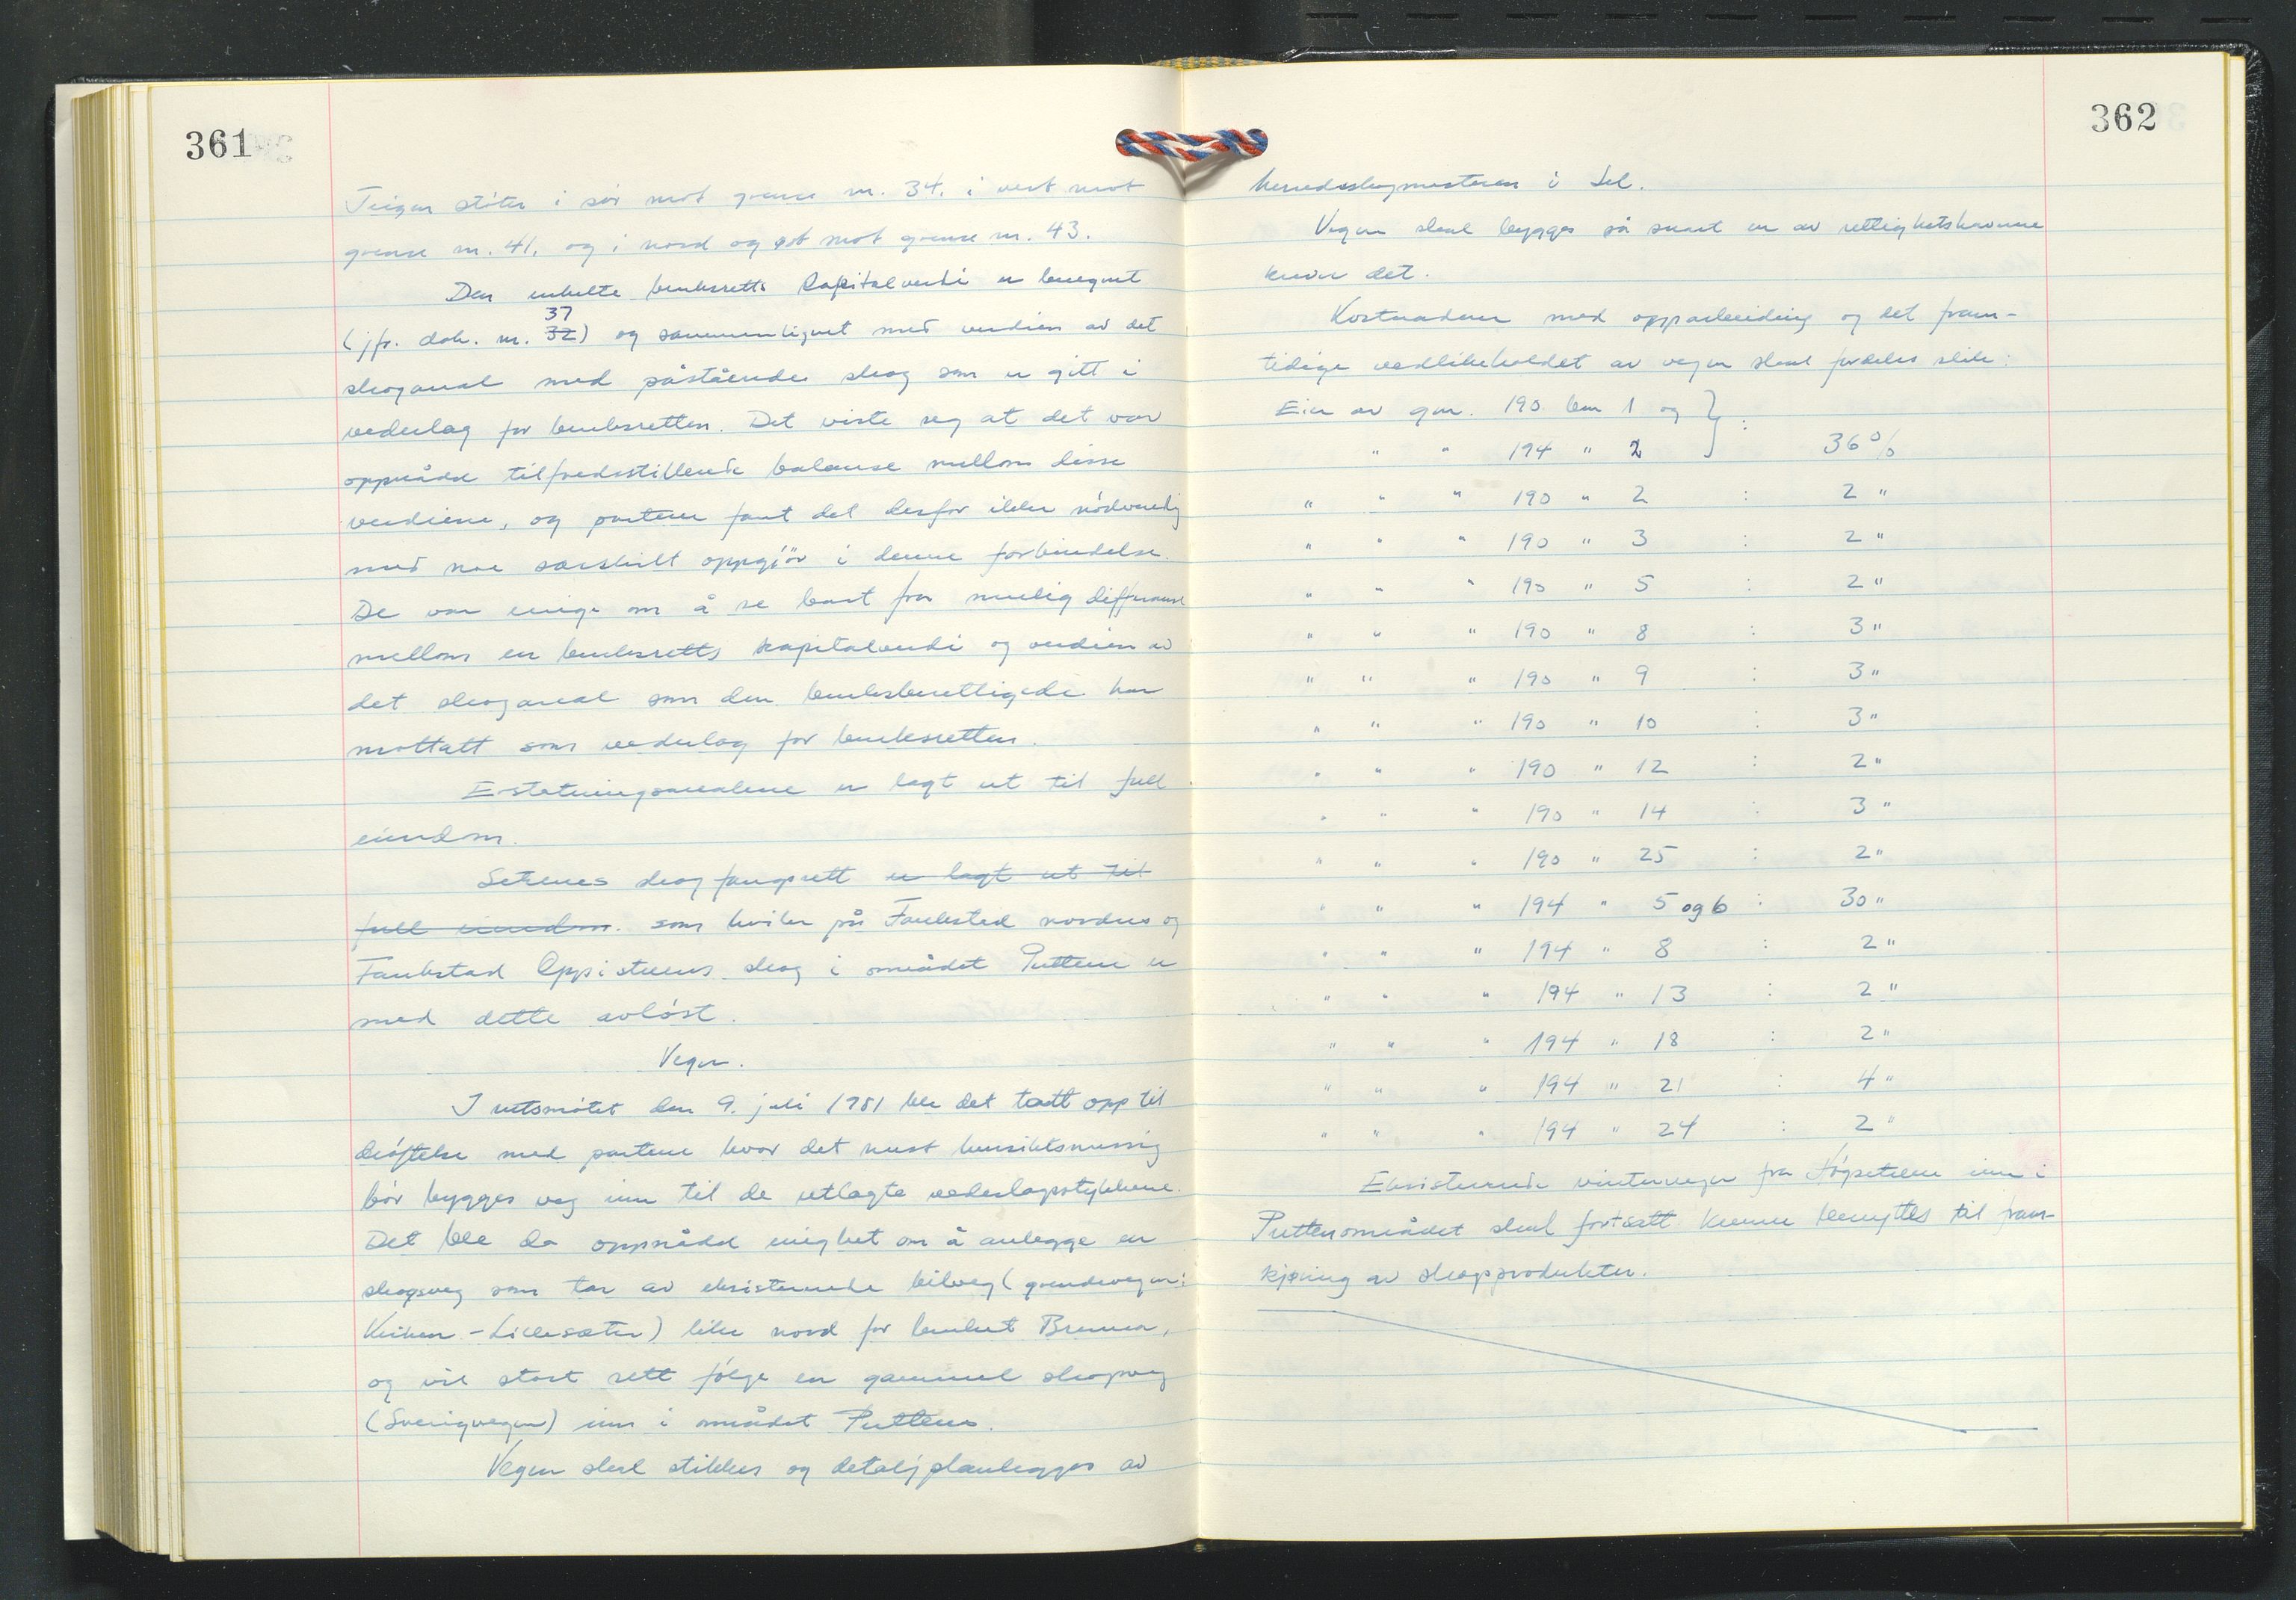 361
Teigen støter i sør mot grense nr. 34, i vest mot
grense nr. 41, og i nord og øst mot grense nr. 43.
Den enkelte bruksretts kapitalverdi er beregnet
37
(jfr. dok. nr. 32) og sammenlignet med verdien av det
skogareal med påstående skog som er gitt i
vederlag for bruksretten. Det viste seg at det var
oppnådd tilfredsstillende balanse mellom disse
verdiene, og partene fant det derfor ikke nødvendig
med noe særskilt oppgjør i denne forbindelse.
De var enige om å se bort fra mulig differanse
mellom en bruksretts kapitalverdi og verdien av
det skogareal som den bruksberettigede har
mottatt som vederlag for bruksretten.
Erstatningsarealene er lagt ut til full
eiendom.
Setrenes skogfangsrett er lagt ut til
full eiendom. som hviler på Faukstad nordre og
Faukstad Oppistuens skog i området Puttene er
med dette avløst.
Veger.
I rettsmøtet den 9. juli 1981 ble det tatt opp til
drøftelse med partene hvor det mest hensiktsmessig
bør bygges veg inn til de utlagte vederlagsstykkene.
Det ble da oppnådd enighet om å anlegge en
skogsveg som tar av eksisterende bilveg (grendevegen:
Kirken - Lillesæter) like nord for bruket Brenna,
og vil stort sett følge en gammel skogsveg
(Svenigvegen) inn i området Puttene.
Vegen skal stikkes og detaljplanlegges av
362
herredsskogmesteren i Sel.
Vegen skal bygges så snart en av rettighetshaverne
krever det.
Kostnadene med opparbeiding og det fram-
tidige vedlikeholdet av vegen skal fordeles slik:
Eier av gnr. 190 bnr 1 og } :
" " 194 " 2 36 %
" " " 190 " 2 : 2 "
" " " 190 " 3 : 2 "
" " " 190 " 5 : 2 "
" " " 190 " 8 : 3 "
" " " 190 " 9 : 3 "
" " " 190 " 10 : 3 "
" " " 190 " 12 : 2 "
" " " 190 " 14 : 3 "
" " " 190 " 25 : 2 "
" " " 194 " 5 og 6 : 30 "
" " " 194 " 8 : 2 "
" " " 194 " 13 : 2 "
" " " 194 " 18 : 2 "
" " " 194 " 21 : 4 "
" " " 194 " 24 : 2 "
Eksisterende vinterveger fra Høgsetrene inn i
Puttenområdet skal fortsatt kunne benyttes til fram-
kjøring av skogprodukter.